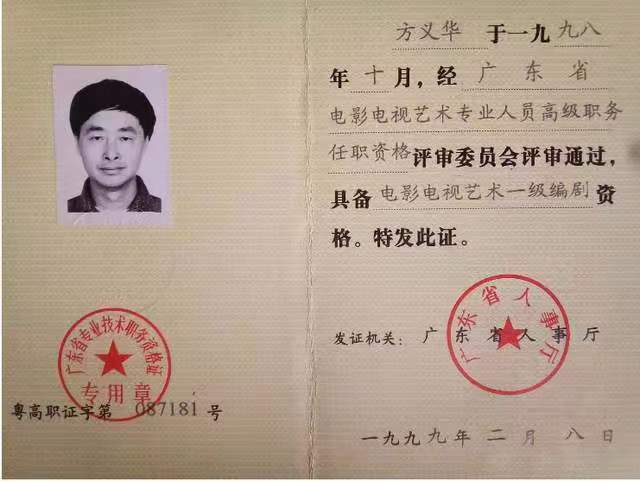 广东省专业技术职务资格证
专用章
粤高职证字第 087181 号
方义华 于一九九八
年十月，经 广东省
电影电视艺术专业人员高级职务
任职资格评审委员会评审通过，
具备电影电视艺术一级编剧资
格。特发此证。
发证机关：广东省人事厅
广东省人事厅
一九九九年二月八日